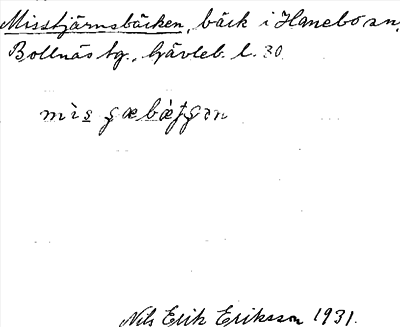 Misstjärnsbäcken, bäck i Hanebo sn,
Bollnäs tg., Gävleb. l. 30
Nils Erik Eriksson 1931.